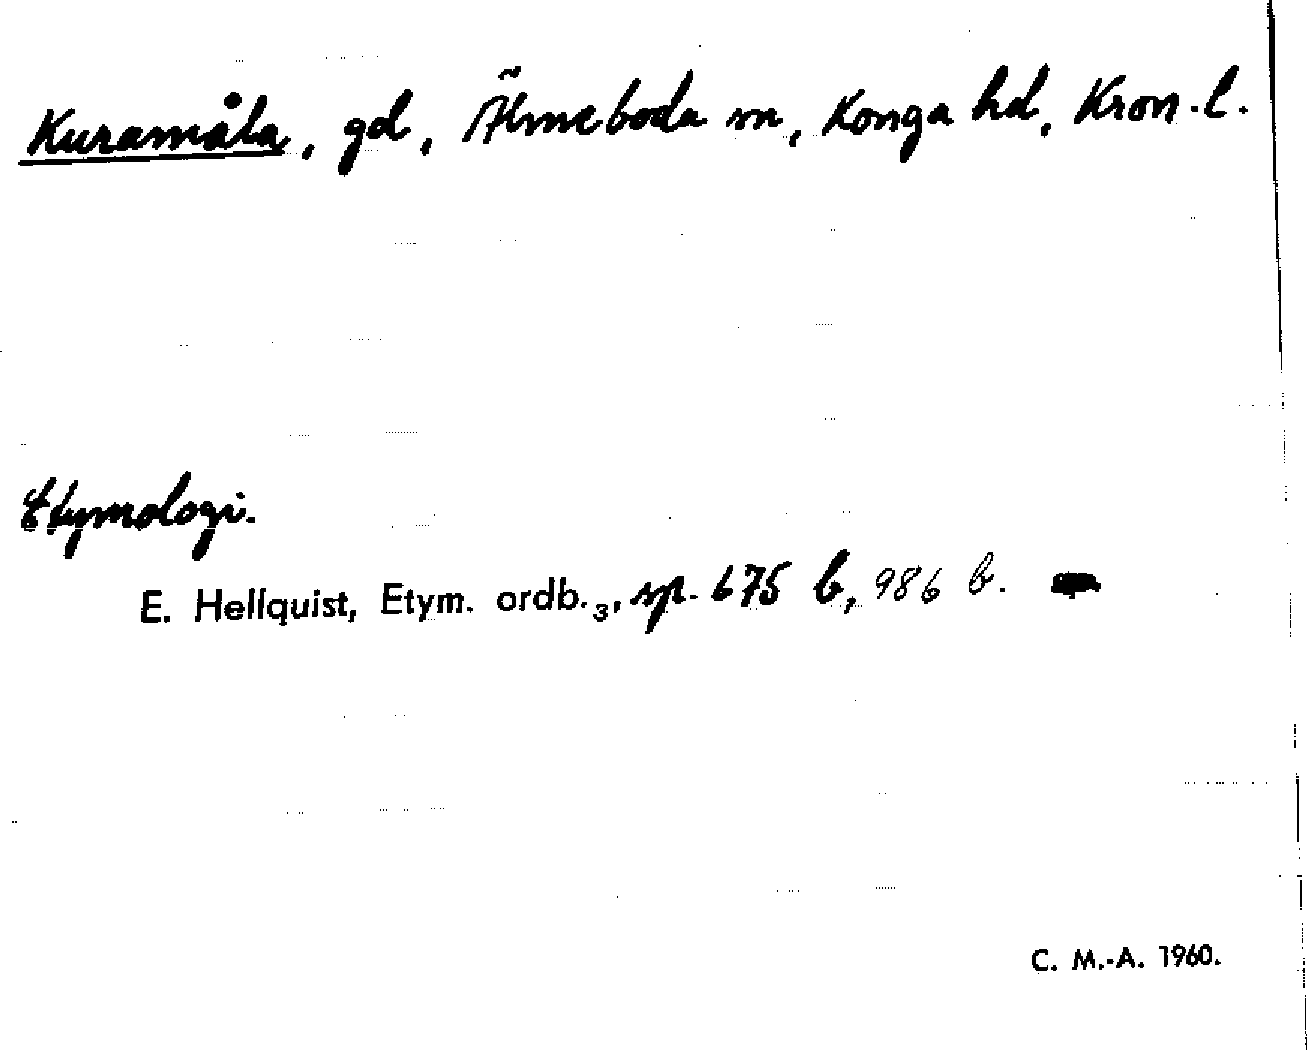 Kuramåla, gd, Älmeboda sn, Konga hd, Kron. l.
Etymologi.
E. Hellquist, Etym. ordb.3, sp. 675 b, 986 b.
C. M.-A. 1960.